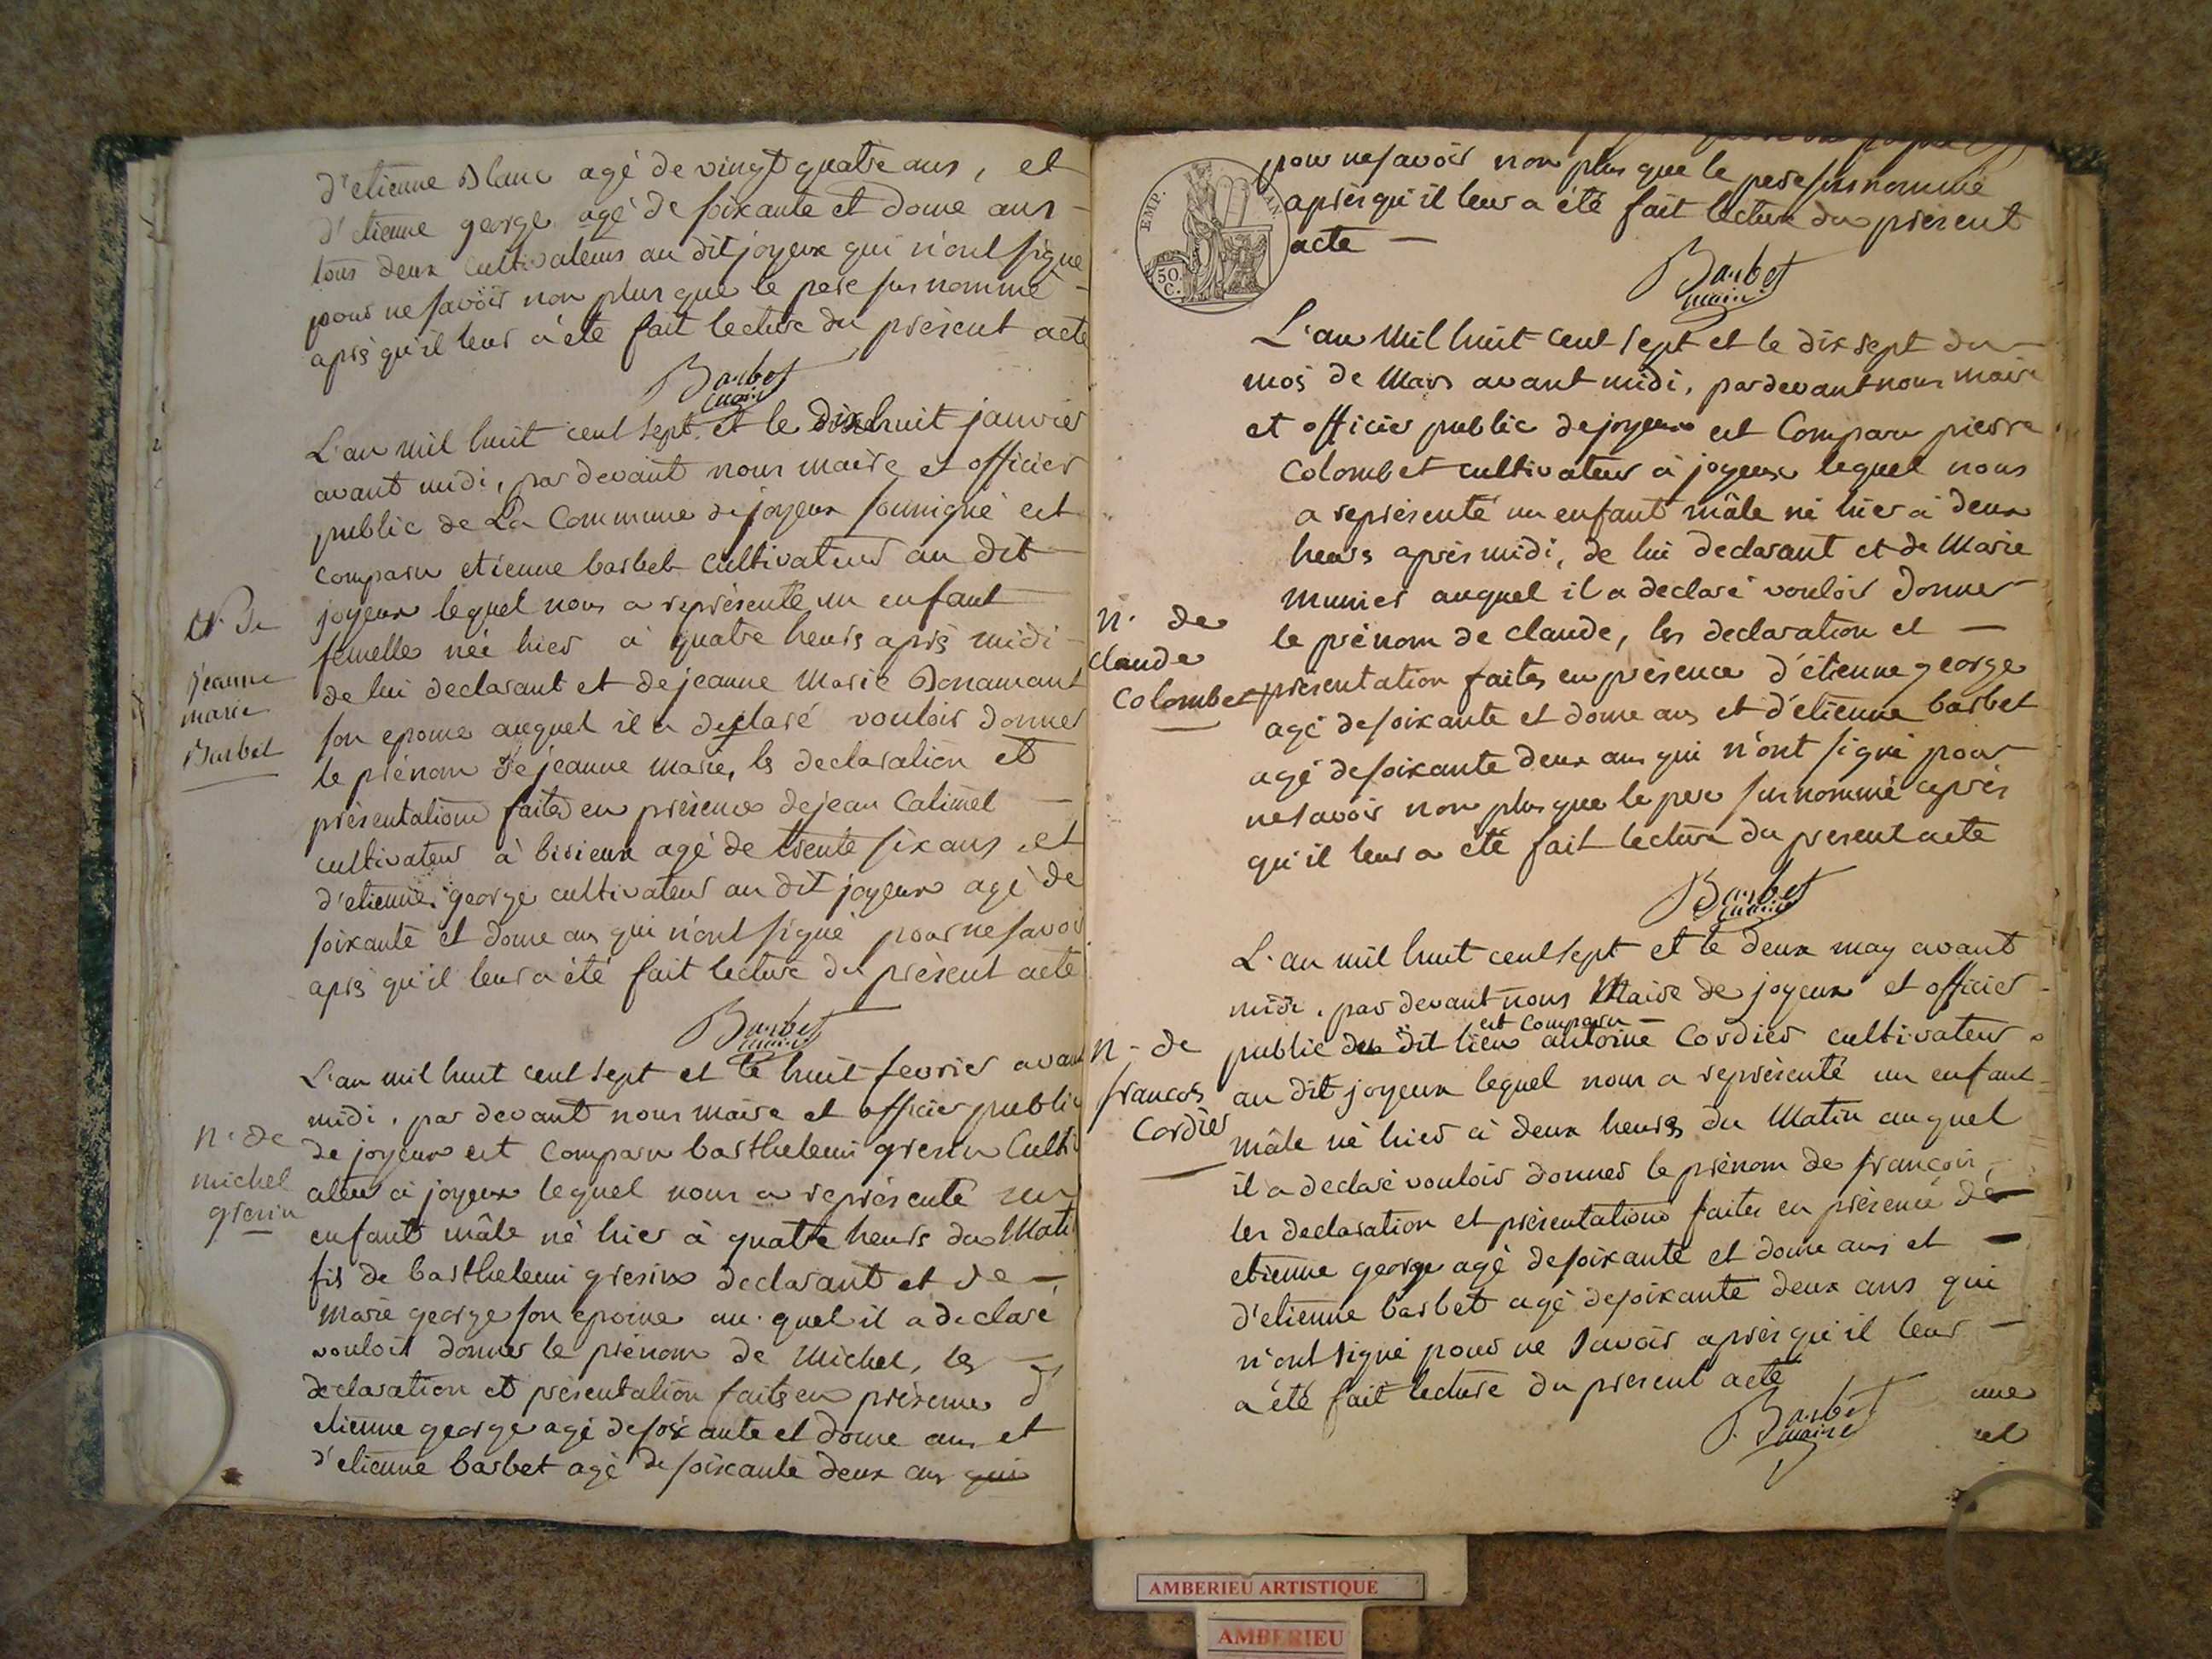 d'etienne Blanc agé de vingt quatre ans, et
d'etienne george agé de soixante et douze ans
tous deux cultivateurs au dit joyeux qui n'ont signé
pour ne savoir non plus que le pere susnommé
aprs qu'il leur a été fait lecture du présent acte
Barbet
maire
L'an mil huit cent sept et le dixhuit janvier
avant midi, par devant nous maire et officier
public de La Commune de joyeux soussigné est
comparu etienne barbet cultivateur au dit
joyeux lequel nous a représenté un enfant
femelle née hier à quatre heurs aprs midi
de lui declarant et de jeanne Marie Donamant
son epouse auquel il a declaré vouloir donner
le prénom de jeanne marie, ls declaration et
présentation faites en présence de jean Catimel
cultivateur à birieux agé de trente six ans, et
d'etienne george cultivateur au dit joyeux agé de
soixante et douze ans qui n'ont signé pour ne savoir
aprs qu'il leur a été fait lecture du présent acte
N. de
jeanne
marie
Barbet
Barbet
maire
L'an mil huit cent sept et le huit fevrier avant
midi. par devant nous maire et officier public
de joyeux est comparu barthelemi gresin Culti
ateur à joyeux lequel nous a représenté un
enfant mâle né hier à quatre heurs du Mati
fils de barthelemi gresin declarant et de
marie george son epouse au quel il a declaré
vouloir donner le prénom de Michel, les
declaration et présentation faits en présence d'
etienne george agé de soixante et douze ans et
d'etienne barbet agé de soixante deux ans qui
n. de
michel
gresin
EMP.
50.
C.
pour ne savoir non plus que le pere susnommé
après qu'il leur a été fait lecture du présent
acte
Barbet
maire
L'an Mil huit cent sept et le dix sept du
mois de Mars avant midi, par devant nous maire
et officier public de joyeux est Comparu pierre
Colombet cultivateur à joyeux lequel nous
a représenté un enfant mâle né hier à deux
heurs après midi, de lui declarant et de Marie
munier auquel il a declaré vouloir donner
le prénom de claude, les declaration et
présentation faites en présence d'étienne george
agé de soixante et douze ans et d'étienne barbet
agé de soixante deux ans qui n'ont signé pour
ne savoir non plus que le pere susnommé après
qu'il leur a été fait lecture du present acte
n. de
claude
Colombet
Barbet
maire
L'an mil huit cent sept et le deux may avant
midi. par devant nous Maire de joyeux et officier
est comparu
public du dit lieu antoine Cordier cultivateur
au dit joyeux lequel nous a représenté un enfant
mâle né hier à deux heures du Matin auquel
il a declaré vouloir donner le prénom de françois,
les declaration et présentation faites en présence de
etienne george agé de soixante et douze ans et
d'etienne barbet agé de soixante deux ans qui
n'ont signé pour ne savoir après qu'il leur
a été fait lecture du present acte
n. de
francois
Cordier
Barbet
maire
une
et
AMBERIEU ARTISTIQUE
AMBERIEU